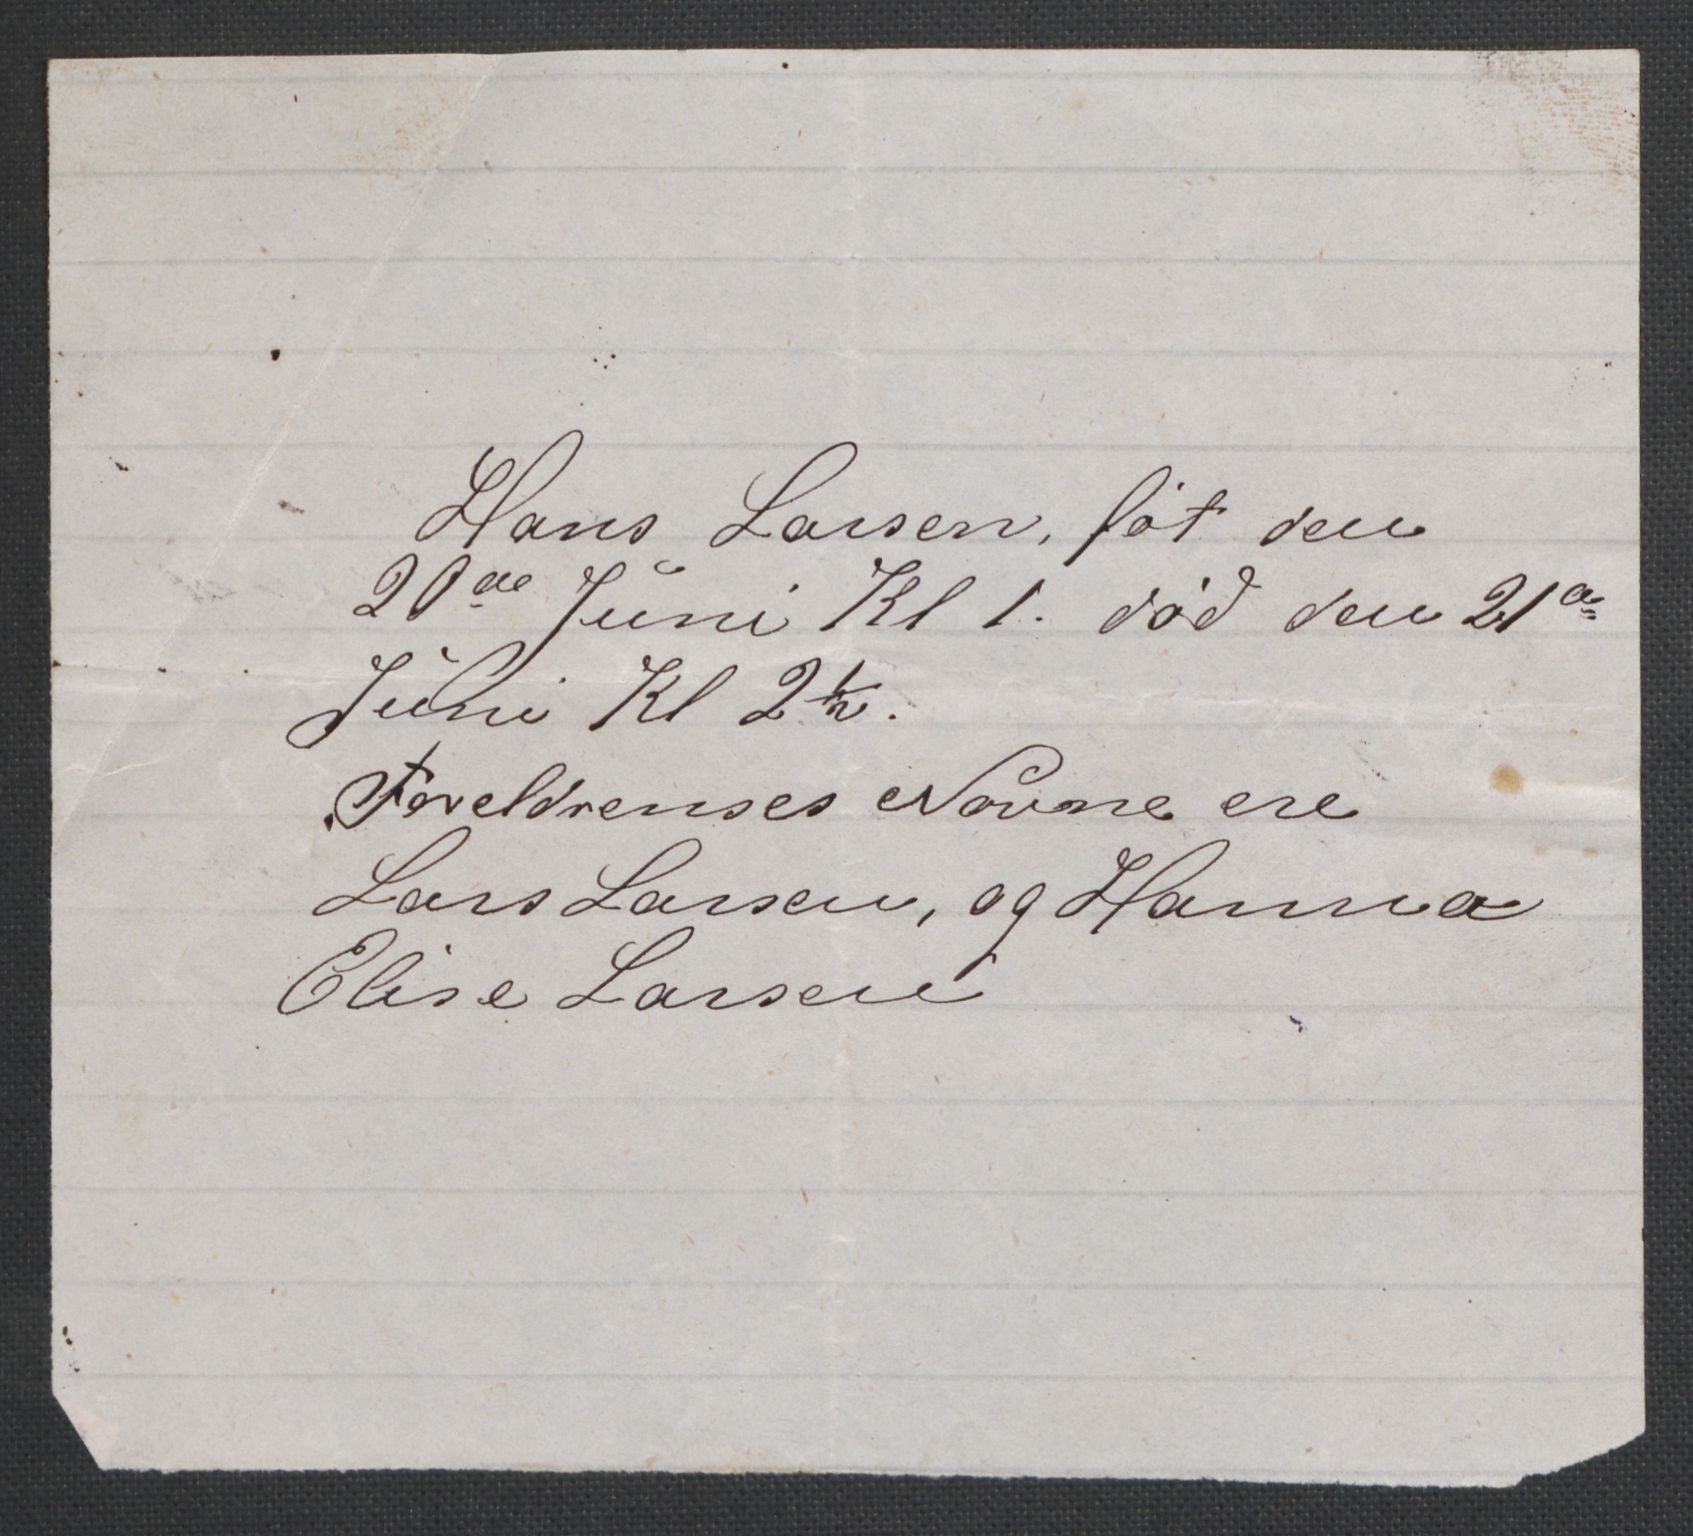 Hans Larsen, føt den
20de Juni Kl 1. død den 21de
Juni Kl 2 1/2.
Foreldrenses Navne ere
Lars Larsen, og Hanna
Elise Larsen